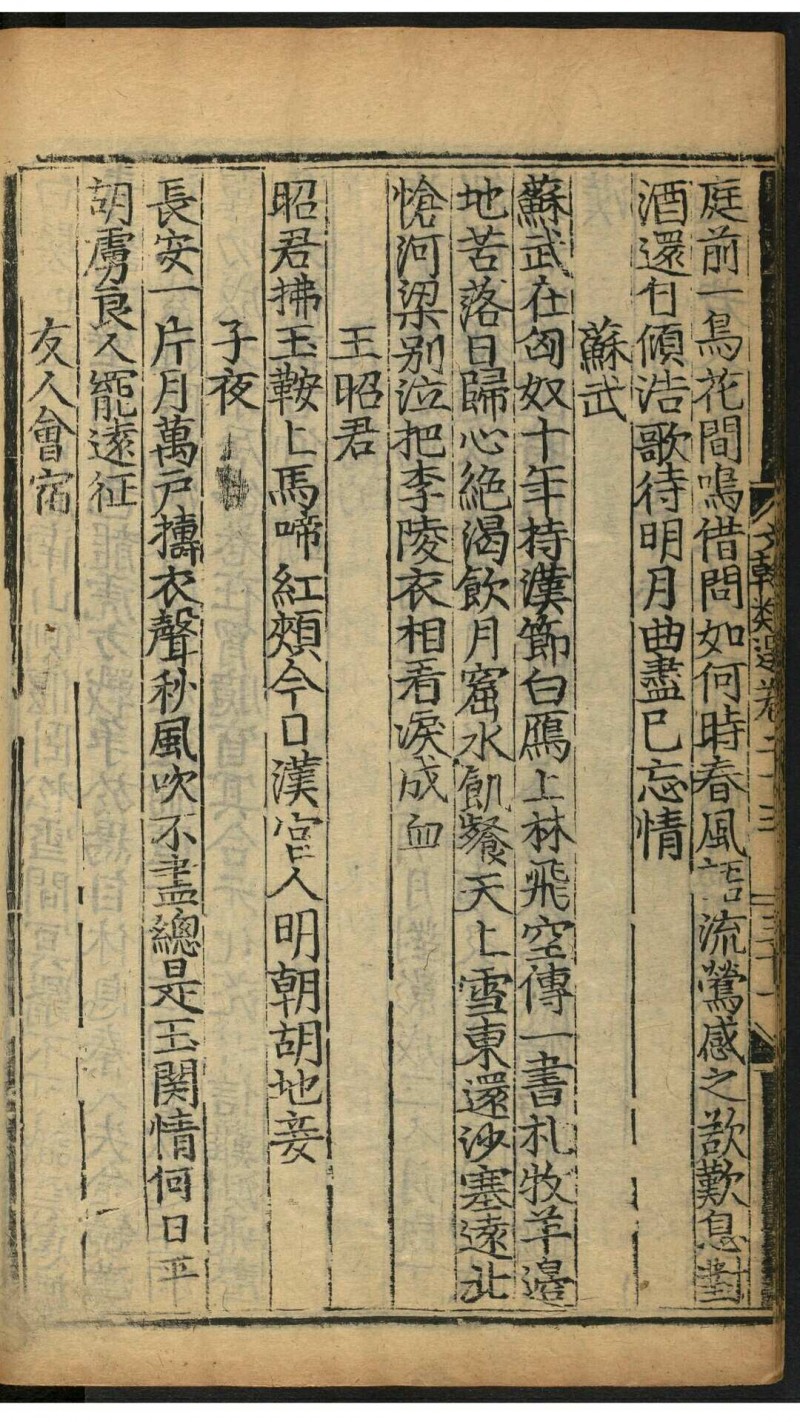 庭前一鳥花間鳴借問如何時春風語流鶯感之欲歎息對
酒還自傾浩歌待明月曲盡已忘情
蘇武
蘇武在匈奴十年持漢節白鴈上林飛空傳一書札牧羊邉
地苦落日歸心絶渴飲月窟水飢餐天上雪東還沙塞遠北
愴河梁别泣把李陵衣相看淚成血
王昭君
昭君拂玉鞍上馬啼紅頰今日漢宫人明朝胡地妾
子夜
長安一片月萬戸擣衣聲秋風吹不盡總是玉関情何日平
胡虜良人罷遠征
友人會宿
文翰類選卷二十三
三十一